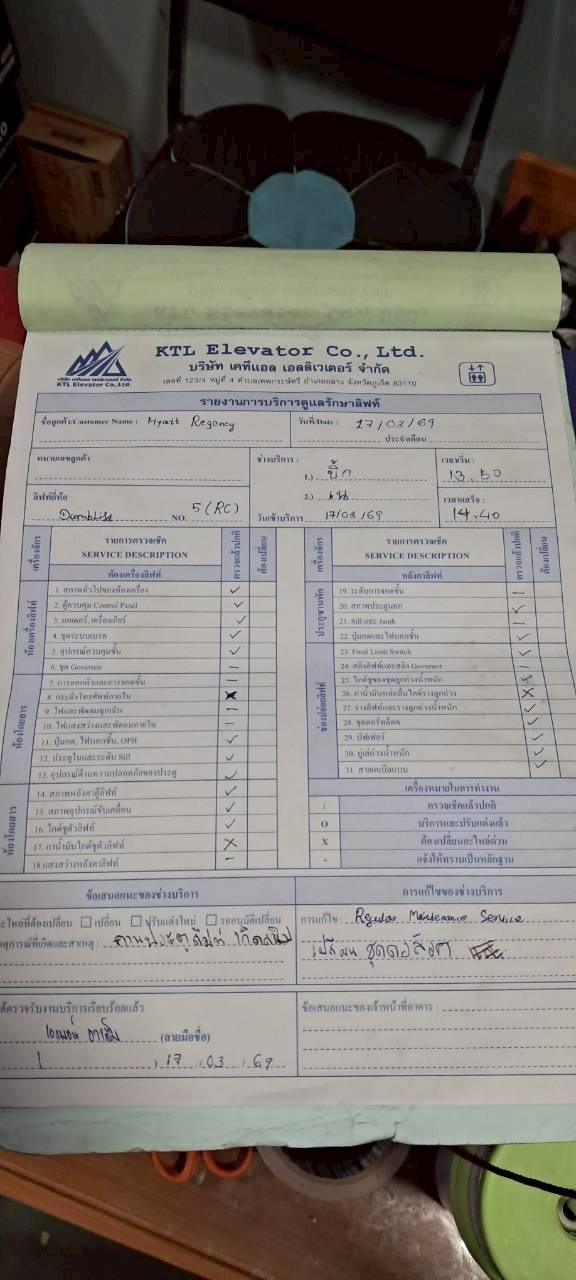 KTL Elevator Co., Ltd.
บริษัท เคทีแอล เอลลิเวเตอร์ จำกัด
บริษัท เคทีแอล เอลลิเวเตอร์ จำกัด
KTL Elevator Co.,Ltd.
เลขที่ 123/4 หมู่ที่ 4 ตำบลเทพกระษัตรี อำเภอถลาง จังหวัดภูเก็ต 83110
รายงานการบริการดูแลรักษาลิฟท์
ชื่อลูกค้า/Customer Name : Hyatt Regency
วันที่/Date : 17/03/69
ประจำเดือน
หมายเลขลูกค้า
ช่างบริการ :
1.) บิ๊ก
2.)
เวลาเริ่ม :
13.50
ลิฟท์ยี่ห้อ
NO. 5 (RC)
วันเข้าบริการ 17/03/69
เวลาเสร็จ :
14.40
เครื่องจักร
รายการตรวจเช็ค
SERVICE DESCRIPTION
ตรวจแล้วปกติ
ต้องเปลี่ยน
ห้องเครื่องลิฟท์
ห้องเครื่องลิฟท์
1. สภาพทั่วไปของห้องเครื่อง ✓
2. ตู้ควบคุม Control Panel ✓
3. มอเตอร์, เครื่องเกียร์ ✓
4. ชุดระบบเบรค ✓
5. อุปกรณ์ควบคุมชั้น ✓
6. ชุด Governor -
ห้องโดยสาร
7. การออกตัวและการจอดชั้น -
8. กระดิ่งโทรศัพท์ภายใน X
9. ไฟและพัดลมฉุกเฉิน -
10. ไฟแสงสว่างและพัดลมภายใน -
11. ปุ่มกด, ไฟบอกชั้น, OPB ✓
12. ประตูในและระดับ Sill ✓
13. อุปกรณ์ด้านความปลอดภัยของประตู ✓
ห้องโดยสาร
14. สภาพหลังคาตู้ลิฟท์ ✓
15. สภาพอุปกรณ์ขับเคลื่อน ✓
16. ไกด์ชูตัวลิฟท์ ✓
17. กาน้ำมันไกด์ชูตัวลิฟท์ X
18.แสงสว่างหลังคาลิฟท์ -
เครื่องจักร
รายการตรวจเช็ค
SERVICE DESCRIPTION
ตรวจแล้วปกติ
ต้องเปลี่ยน
หลังคาลิฟท์
ประตูชานพัก
19. ระดับการจอดชั้น -
20. สภาพประตูนอก ✓
21. Sill และ Jamb -
22. ปุ่มกดและไฟบอกชั้น ✓
ช่องปล่องลิฟท์
23. Final Limit Switch ✓
24. สลิงลิฟท์และสลิง Governor -
25. ไกด์ชูของชุดลูกถ่วงน้ำหนัก ✓
26. กาน้ำมันหล่อลื่นไกด์รางลูกถ่วง X
27. รางลิฟท์และรางลูกถ่วงน้ำหนัก ✓
28. ชุดดอร์ล็อค ✓
29. บัฟเฟอร์ ✓
30. มู่เล่ถ่วงน้ำหนัก ✓
31. สายเคเบิลแบน ✓
เครื่องหมายในการทำงาน
/ ตรวจเช็คแล้วปกติ
O บริการและปรับแต่งแล้ว
X ต้องเปลี่ยนอะไหล่ด่วน
- แจ้งให้ทราบเป็นหลักฐาน
ข้อเสนอแนะของช่างบริการ
ะไหล่ที่ต้องเปลี่ยน เปลี่ยน ปรับแต่งใหม่ รออนุมัติเปลี่ยน
หตุการณ์ที่เกิดและสาเหตุ :
การแก้ไขของช่างบริการ
การแก้ไข : Regular Maintenance Service
เปลี่ยน ชุดดอร์ล็อค
ด้ตรวจรับงานบริการเรียบร้อยแล้ว
(ลายมือชื่อ)
17 / 03 / 69
ข้อเสนอแนะของเจ้าหน้าที่อาคาร :